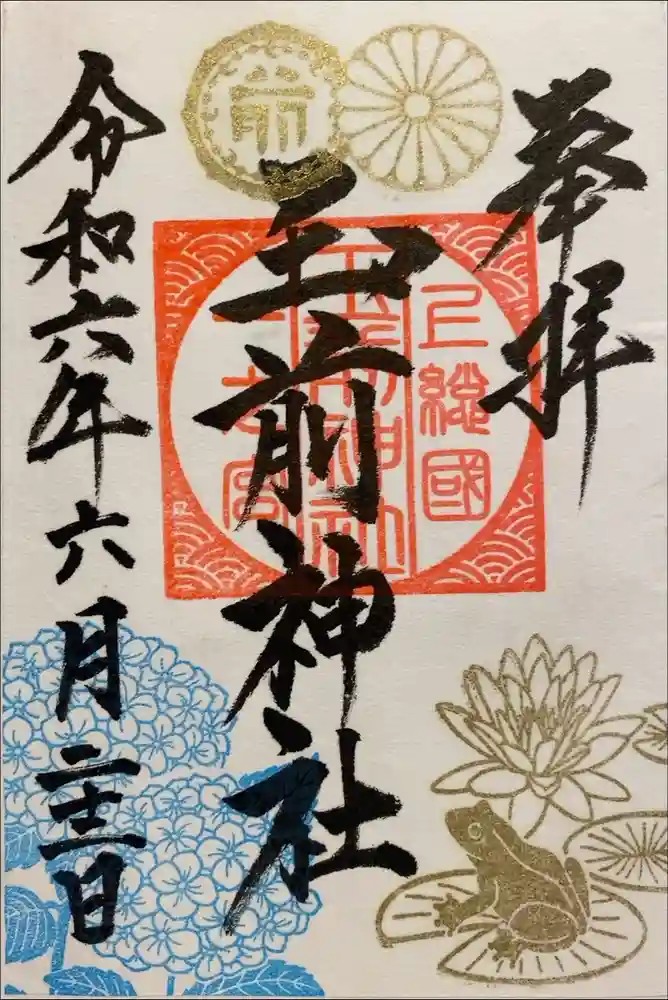 奉拝
上總國
玉前神社
玉前神社
一之宮
令和六年六月二十三日